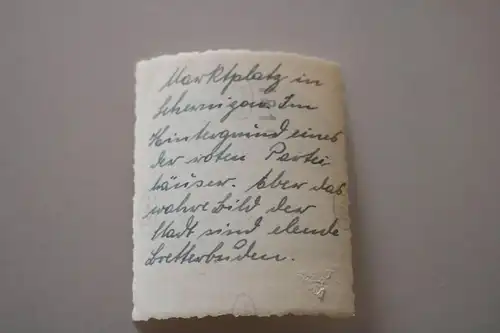 Marktplatz in
Schernigow. Im
Hintergrund eines
der roten Partei
häuser. Aber das
wahre Bild der
Stadt sind elende
Bretterbuden.